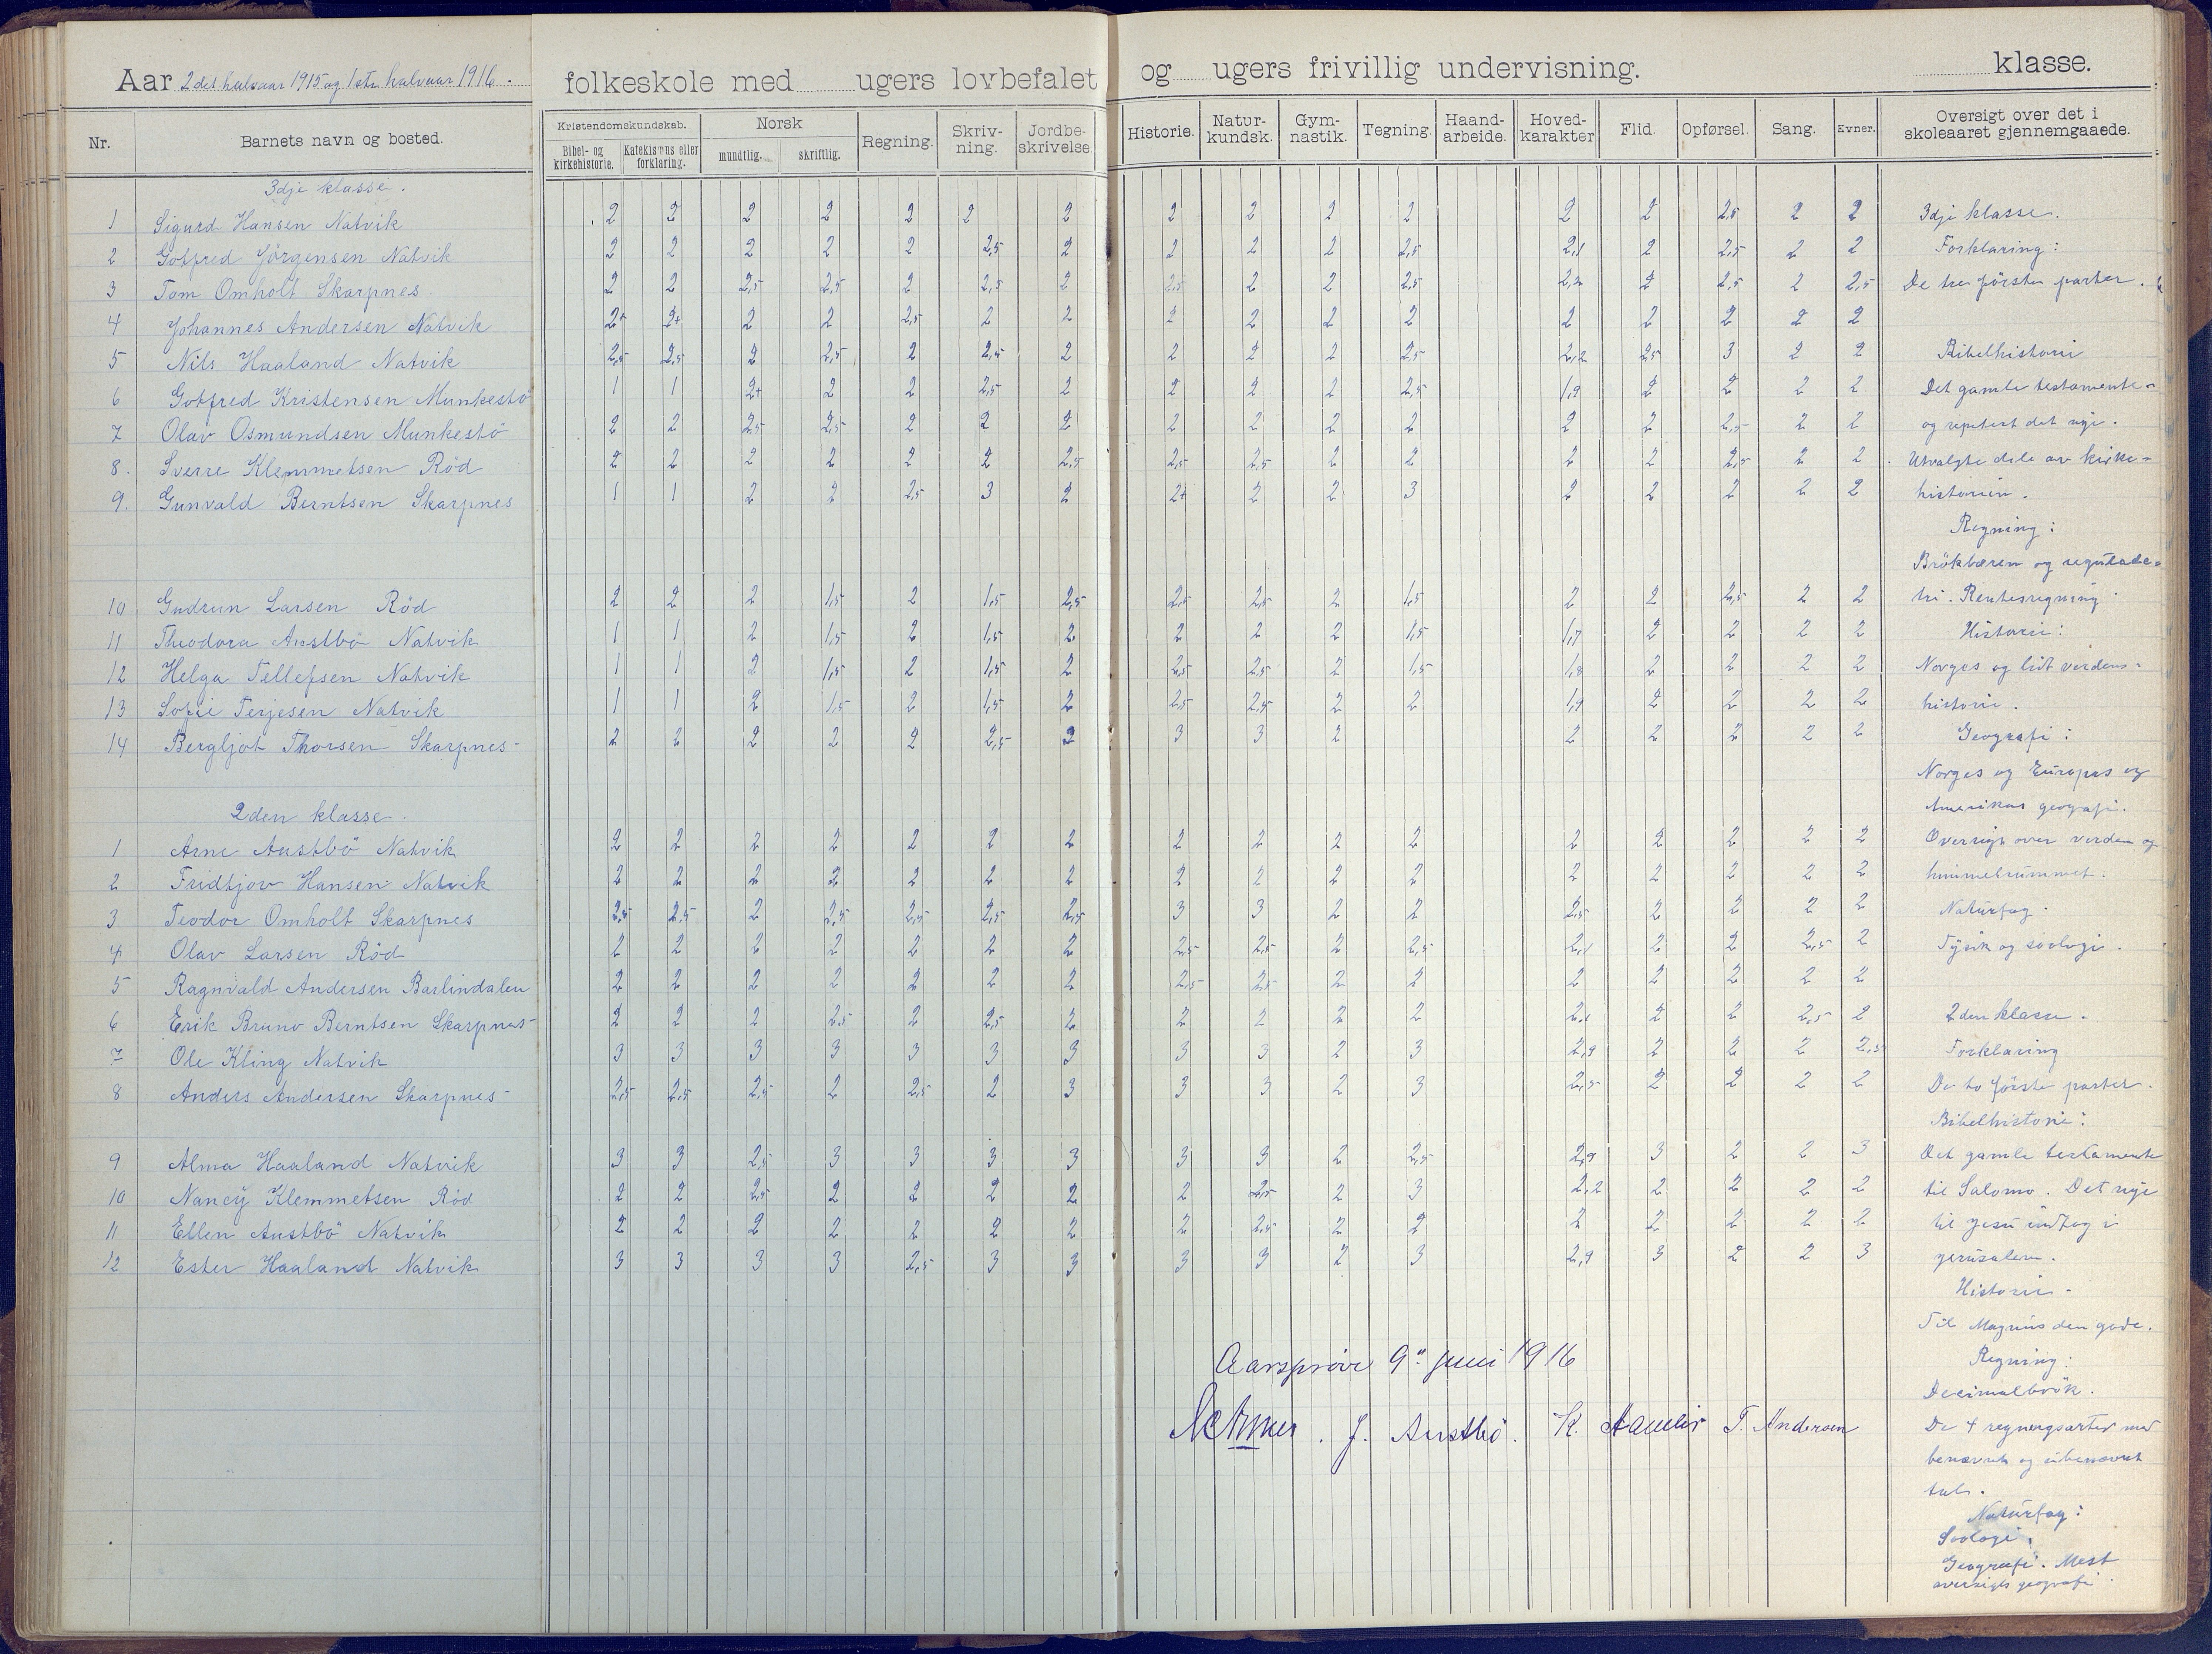 Aar 2det halvaar 1915 og 1ste halvaar 1916. folkeskole med ugers lovbefalet og ugers frivillig undervisning. klasse.
Nr. Barnets navn og bosted. Kristendomskundskab. Bibel- og kirkehistorie. Katekismus eller forklaring. Norsk mundtlig. skriftlig. Regning. Skriv-ning. Jordbe-skrivelse. Historie. Natur-kundsk. Gym-nastik. Tegning. Haand-arbeide. Hoved-karakter Flid. Opførsel. Sang. Evner. Oversigt over det i skoleaaret gjennemgaaede.
3dje klasse.
1 Sigurd Hansen Natvik 2 2 2 2 2 2 2 2 2 2 2 2 2 2,5 2 2 3dje klasse.
2 Gotfred Jörgensen Natvik 2 2 2 2 2 2,5 2 2 2 2 2,5 2,1 2 2,5 2 2 Forklaring:
3 Tom Omholt Skarpnes 2 2 2,5 2,5 2 2,5 2 2,5 2 2 2,5 2,2 2 2,5 2 2,5 De tre förste parter.
4 Johannes Andersen Natvik 2+ 2+ 2 2 2,5 2 2 2 2 2 2 2 2 2 2 2
5 Nils Haaland Natvik 2,5 2,5 2 2,5 2 2,5 2 2 2 2 2,5 2,2 2,5 3 2 2 Bibelhistorie
6 Gotfred Kristensen Munkestö 1 1 2+ 2 2 2,5 2 2 2 2 2,5 1,9 2 2 2 2 Det gamle testamente-
7 Olav Osmundsen Munkestö 2 2 2,5 2,5 2 2 2 2 2 2 2 2 2 2,5 2 2 og repetert det nye.
8. Sverre Klemmetsen Röd 2 2 2 2 2 2 2,5 2,5 2,5 2 2 2 2 2,5 2 2 Utvalgte dele av kirke-
9. Gunvald Berntsen Skarpnes 1 1 2 2 2,5 3 2 2+ 2 2 3 2 2 2 2 2 historien.
Regning:
Brökbæren og regulade-
10 Gudrun Larsen Röd 2 2 2 1,5 2 1,5 2,5 2,5 2,5 2 1,5 2 2 2,5 2 2 tri. Rentesregning
11 Theodora Austbö Natvik 1 1 2 1,5 2 1,5 2 2 2 2 1,5 1,7 2 2 2 2 Historie:
12 Helga Tellefsen Natvik 1 1 2 1,5 2 1,5 2 2,5 2,5 2 1,5 1,8 2 2 2 2 Norges og lidt verdens-
13 Sofie Terjesen Natvik 1 1 2 1,5 2 1,5 2 2,5 2,5 2 2 1,9 2 2 2 2 historie.
14 Bergljot Thorsen Skarpnes- 2 2 2 2 2 2,5 2 3 3 2 2 2 2 2 2 Geografi:
Norges og Europas og
2den klasse. Amerikas geografi.
1 Arne Austbö Natvik 2 2 2 2 2 2 2 2 2 2 2 2 2 2 2 2 Oversigt over verden og
2 Fridtjov Hansen Natvik 2 2 2 2 2 2 2 2 2 2 2 2 2 2 2 2 himmelrummet.
3 Teodor Omholt Skarpnes 2,5 2,5 2 2,5 2,5 2,5 2,5 3 3 2 2 2,5 2 2 2 2 Naturfag.
4 Olav Larsen Röd 2 2 2 2 2 2 2 2,5 2,5 2 2,5 2,1 2 2 2,5 2 Fysik og soologi.
5 Ragnvald Andersen Barlindalen 2 2 2 2 2 2 2 2,5 2,5 2 2 2 2 2 2 2
6 Erik Bruno Berntsen Skarpnes- 2 2 2 2,5 2 2,5 2 2 2 2 2 2,1 2 2 2,5 2 2den klasse.
7 Ole Kling Natvik 3 3 3 3 3 3 3 3 3 2 3 2,9 2 2 2 2,5 Forklaring
8 Anders Andersen Skarpnes- 2,5 2,5 2,5 2 2,5 2 3 3 3 2 3 2,5 2 2 2 2 De to förste parter.
Bibelhistorie:
9 Alma Haaland Natvik 3 3 2,5 3 3 3 3 3 3 2 2,5 2,9 3 2 2 3 Det gamle testamente
10 Nancy Klemmetsen Röd 2 2 2,5 2 2 2 2 2 2,5 2 3 2,2 2 2 2 2 til Salomo. Det nye
11 Ellen Austbö Natvik 2 2 2 2 2 2 2 2 2,5 2 2 2 2 2 2 2 til Jesu indtog i
12 Ester Haaland Natvik 3 3 3 3 2,5 3 3 3 3 2 3 2,9 3 2 2 3 Jerusalem.
Historie-
Til Magnus den gode.
Aarsprøve 9de juni 1916 Regning:
Decimalbrök.
J. Austbö. K. T. Andersen De 4 regningsarter med
benævnt og ubenævnt
tal.
Naturfag:
Soologi.
Geografi. Mest
oversigts geografi.